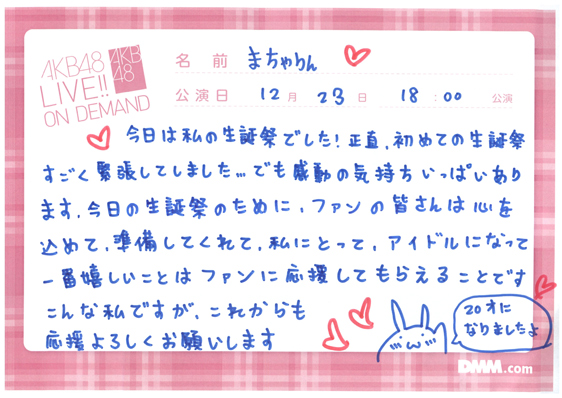 AKB48
LIVE!!
ON DEMAND
AKB
48
名前 まちゃりん
公演日 12月 23日 18:00 公演
今日は私の生誕祭でした！正直、初めての生誕祭
すごく緊張してしました…でも感動の気持ちいっぱいあり
ます。今日の生誕祭のために、ファンの皆さんは心を
込めて、準備してくれて、私にとって、アイドルになって
一番嬉しいことはファンに応援してもらえることです
こんな私ですが、これからも
応援よろしくお願いします
20才に
なりましたよ
DMM.com